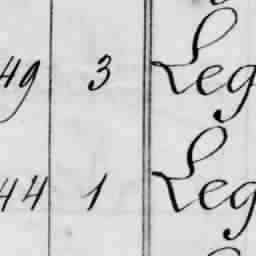 49 3 Leg
44 1 Leg